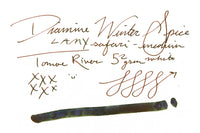 Diamine Winter Spice
LAMY safari - medium
Tomoe River 52 gsm white